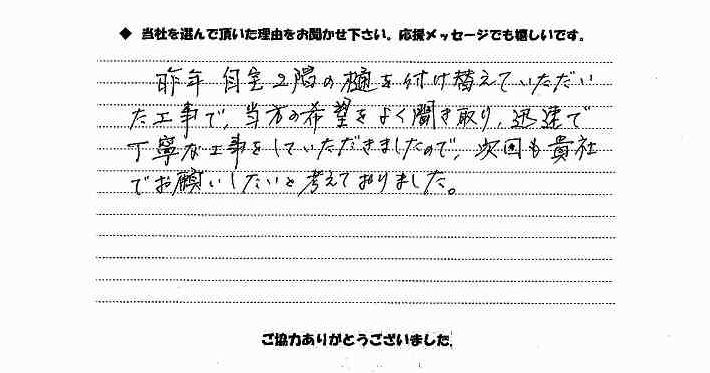 ◆ 当社を選んで頂いた理由をお聞かせ下さい。応援メッセージでも嬉しいです。
昨年 自宅2階の樋を付け替えていただい
た工事で、当方の希望をよく聞き取り、迅速で
丁寧な工事をしていただきましたので、次回も貴社
でお願いしたいと考えておりました。
ご協力ありがとうございました。